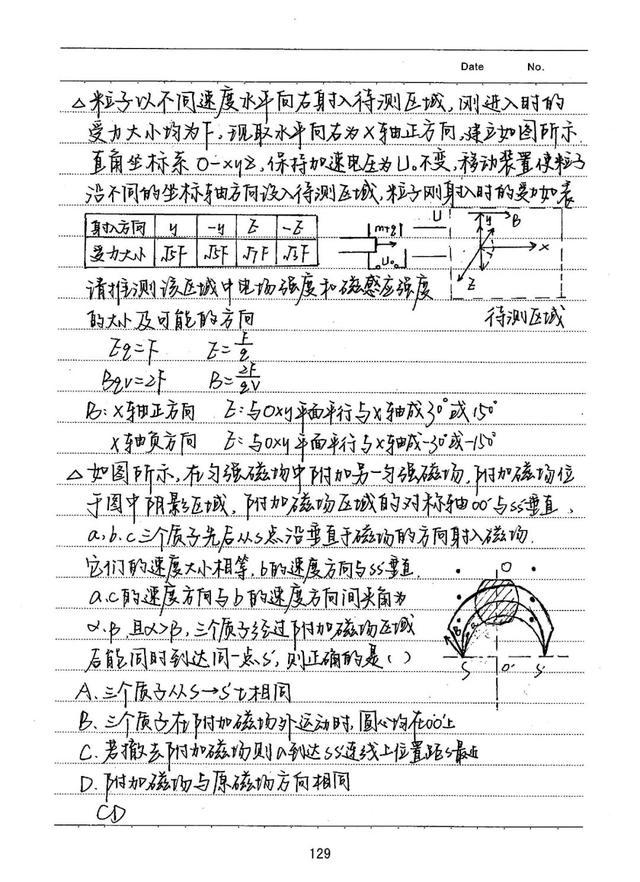 Date No.
△粒子以不同速度水平向右射入待测区域,刚进入时的
受力大小均为F,现取水平向右为X轴正方向,建立如图所示
直角坐标系O-xyz,保持加速电压为U₀不变,移动装置使粒子
沿不同的坐标轴方向设入待测区域,粒子刚射入时的受力如表
射入方向 y -y z -z
受力大小 √5F √5F √7F √3F
m+q U U₀ y B x z
请推测该区域中电场强度和磁感应强度
的大小及可能的方向 待测区域
Eq=F E=F/q
Bqv=2F B=2F/qv
B:X轴正方向 E:与Oxy平面平行与X轴成30°或150°
X轴负方向 E:与Oxy平面平行与X轴成-30°或-150°
△如图所示,在匀强磁场中附加另一匀强磁场,附加磁场位
于图中阴影区域,附加磁场区域的对称轴OO'与SS'垂直,
a.b.c三个质子先后从S点沿垂直于磁场的方向射入磁场.
它们的速度大小相等,b的速度方向与SS'垂直,
a.c的速度方向与b的速度方向间夹角为
α.β,且α>β,三个质子经过附加磁场区域
后能同时到达同一点S',则正确的是( )
O S O' S'
A.三个质子从S→S't相同
B.三个质子在附加磁场外运动时,圆心均在OO'上
C.若撤去附加磁场则a到达SS'连线上位置距S最近
D.附加磁场与原磁场方向相同
CD
129